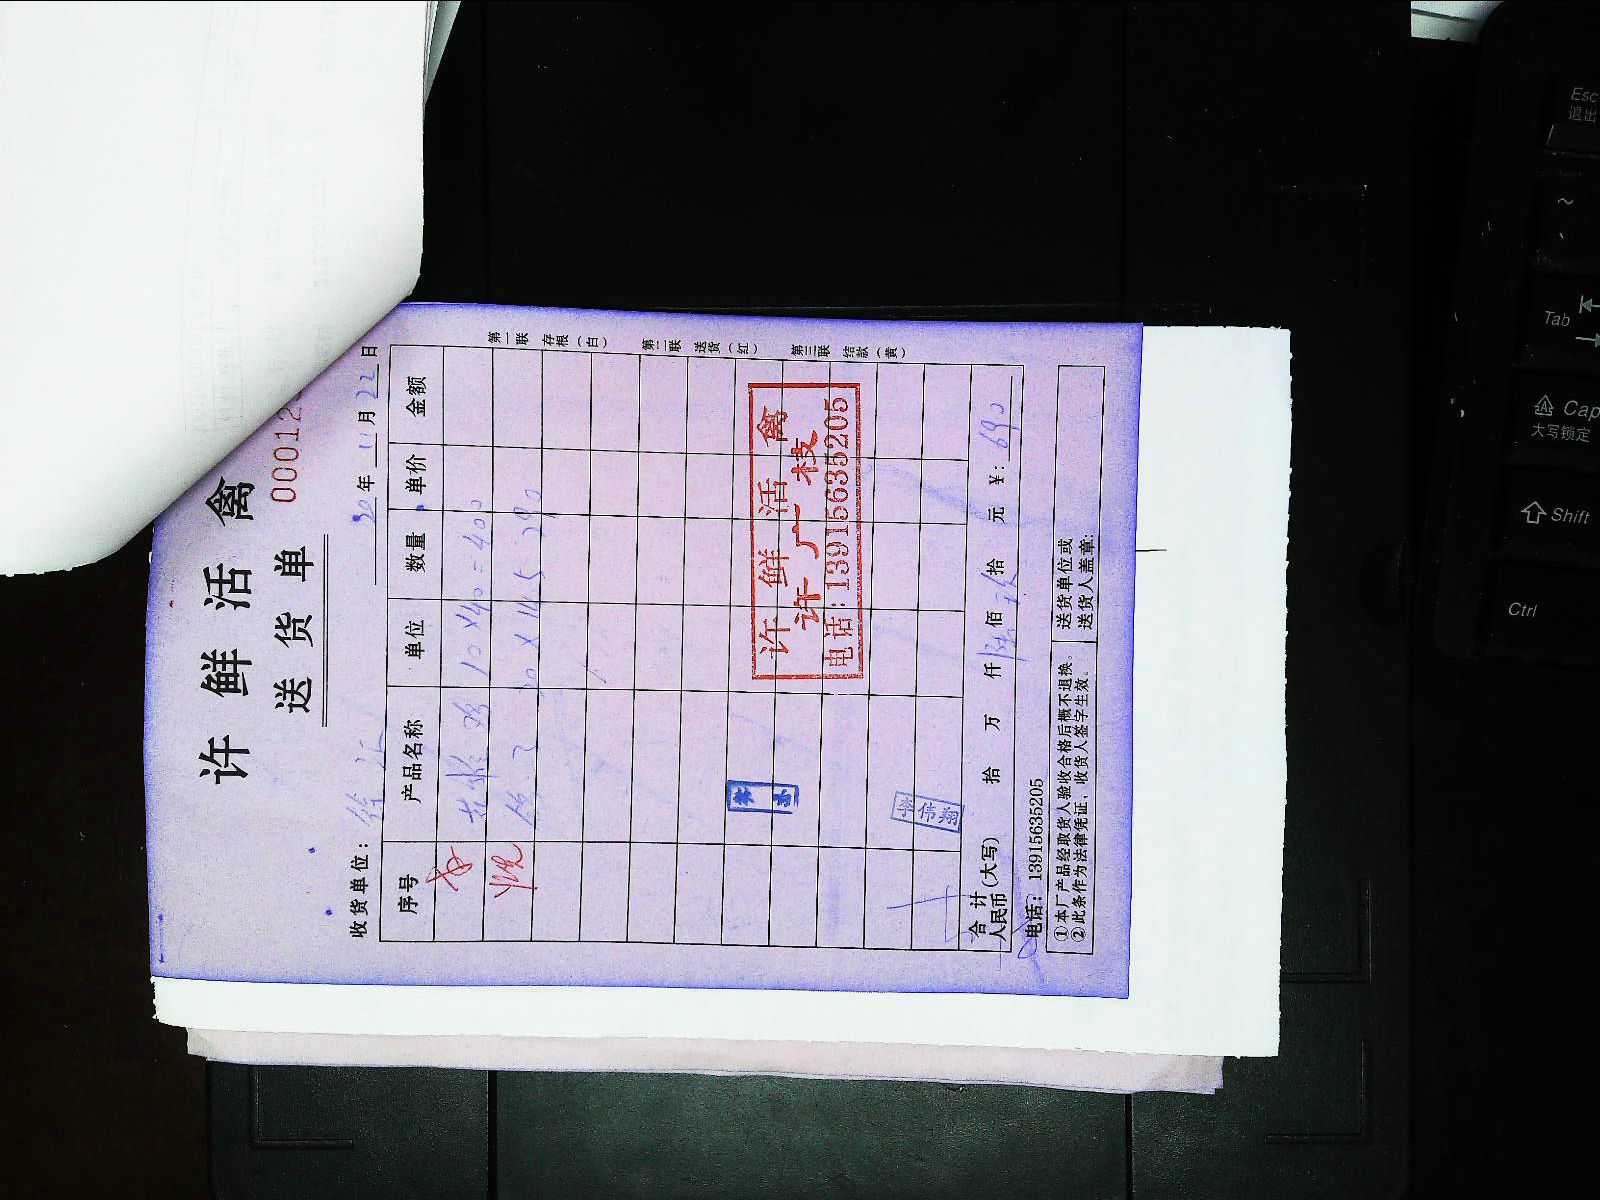 许鲜活禽
送货单
00012
收货单位：
20年11月22日
序号 产品名称 单位 数量 单价 金额
10×40=400
20×14.5 290
第一联 存根（白）
第二联 送货（红）
第三联 结款（黄）
许鲜活禽
许广枝
电话:13915635205
李伟翔
合计人民币(大写) 拾 万 仟 陆佰 玖拾 元 ¥:690
电话：13915635205
①本厂产品经取货人验收合格后概不退换。
②此条作为法律凭证，收货人签字生效。
送货单位或
送货人盖章:
Esc
退出
~
Tab
Cap
大写锁定
Shift
Ctrl